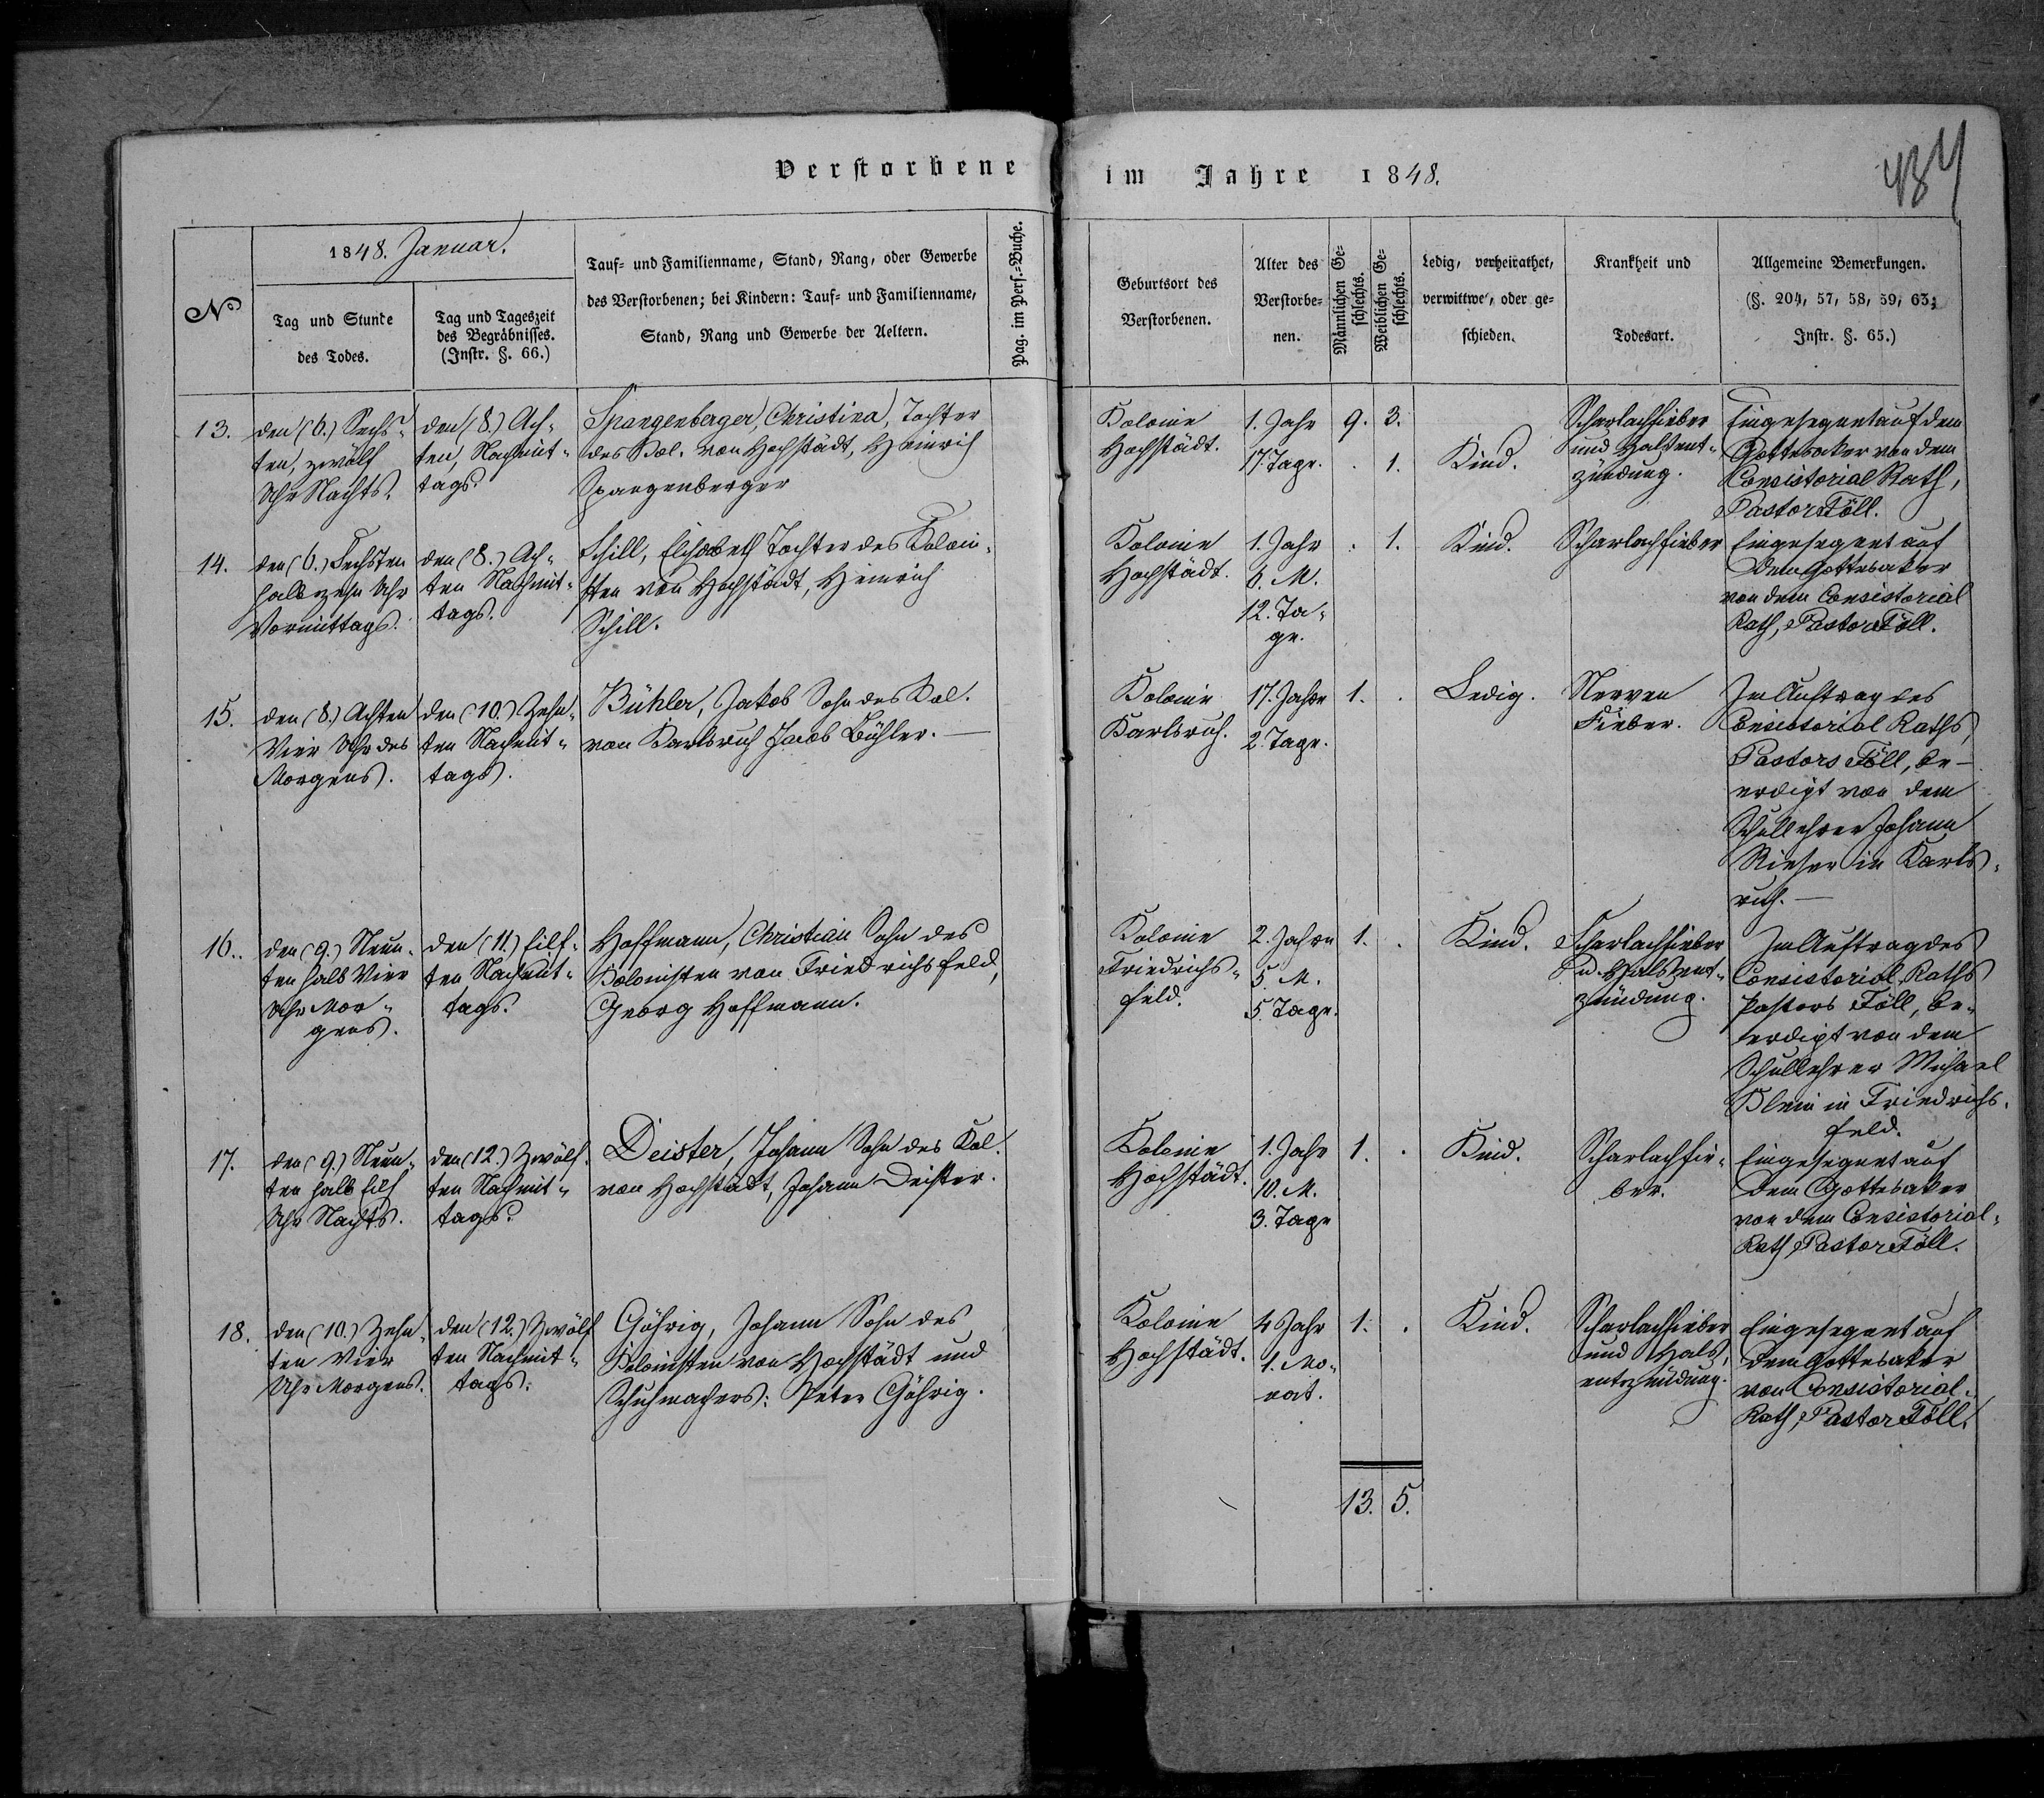 Verstorbene im Jahre 1848.
484
No
1848. Januar.
Tag und Stunde
des Todes.
Tag und Tageszeit
des Begräbnisses.
(Instr. §. 66.)
Tauf- und Familienname, Stand, Rang, oder Gewerbe
des Verstorbenen; bei Kindern: Tauf- und Familienname,
Stand, Rang und Gewerbe der Aeltern.
Pag. im Pers.-Buche.
Geburtsort des
Verstorbenen.
Alter des
Verstorbe-
nen.
Männlichen Ge-
schlechts.
Weiblichen Ge-
schlechts.
Ledig, verheirathet,
verwittwe', oder ge-
schieden.
Krankheit und
Todesart.
Allgemeine Bemerkungen.
(§. 204, 57, 58, 59, 63;
Instr. §. 65.)
13.
den (6.) Sechs-
ten, zwölf
Uhr Nachts.
den (8.) Ach-
ten, Nachmit-
tags.
Spangenberger, Christina, Tochter
des Kol. von Hochstädt, Heinrich
Spangenberger
Kolonie
Hochstädt.
1. Jahr
17. Tage.
9. 3.
. 1.
Kind.
Scharlachfieber
und Halsent-
zündung.
Eingesegnet auf dem
Gottesaker von dem
Consistorial Rath,
Pastor Föll.
14.
den (6.) Sechsten
halb zehn Uhr
Vormittags.
den (8.) Ach-
ten Nachmit-
tags.
Schill, Elisabeth Tochter des Koloni-
sten von Hochstädt, Heinrich
Schill.
Kolonie
Hochstädt.
1. Jahr
6. M.
12. Ta-
ge.
. 1.
Kind.
Scharlachfieber
Eingesegnet auf
dem Gottesaker
von dem Consistorial
Rath, Pastor Föll.
15.
den (8.) Achten
Vier Uhr des
Morgens.
den (10.) Zehn-
ten Nachmit-
tags.
Bühler, Jakob Sohn des Kol.
von Karlsruh Jacob Bühler. —
Kolonie
Karlsruh.
17. Jahre
2. Tage.
1. .
Ledig.
Nerven
Fieber.
Im Auftrag des
Consistorial Raths,
Pastors Föll, be-
erdigt von dem
Schullehrer Johann
Rieser in Karls-
ruh. —
16..
den (9.) Neun-
ten halb Vier
Uhr Mor-
gens.
den (11.) Eilf-
ten Nachmit-
tags.
Hoffmann, Christian Sohn des
Kolonisten von Friedrichsfeld,
Georg Hoffmann.
Kolonie
Friedrichs-
feld.
2. Jahre
5. M.
5. Tage.
1. .
Kind.
Scharlachfieber
u. Halsent-
zündung.
Im Auftrag des
Consistorial Raths
Pastors Föll, be-
erdigt von dem
Schullehrer Michael
Klein in Friedrichs-
feld.
17.
den (9.) Neun-
ten halb Eilf
Uhr Nachts.
den (12.) Zwölf-
ten Nachmit-
tags.
Deister, Johann Sohn des Kol.
von Hochstädt, Johann Deister.
Kolonie
Hochstädt.
1. Jahr
10. M.
3. Tage
1. .
Kind.
Scharlachfie-
ber.
Eingesegnet auf
dem Gottesaker
von dem Consistorial-
Rath, Pastor Föll.
18.
den (10.) Zehn-
ten Vier
Uhr Morgens.
den (12.) Zwölf
ten Nachmit-
tags.
Göhrig, Johann Sohn des
Kolonisten von Hochstädt und
Schuhmachers: Peter Göhrig.
Kolonie
Hochstädt.
4 Jahr
1. Mo-
nat.
1. .
Kind.
Scharlachfieber
und Hals-
entzündung.
Eingesegnet auf
dem Gottesaker
von Consistorial-
Rath, Pastor Föll.
13. 5.